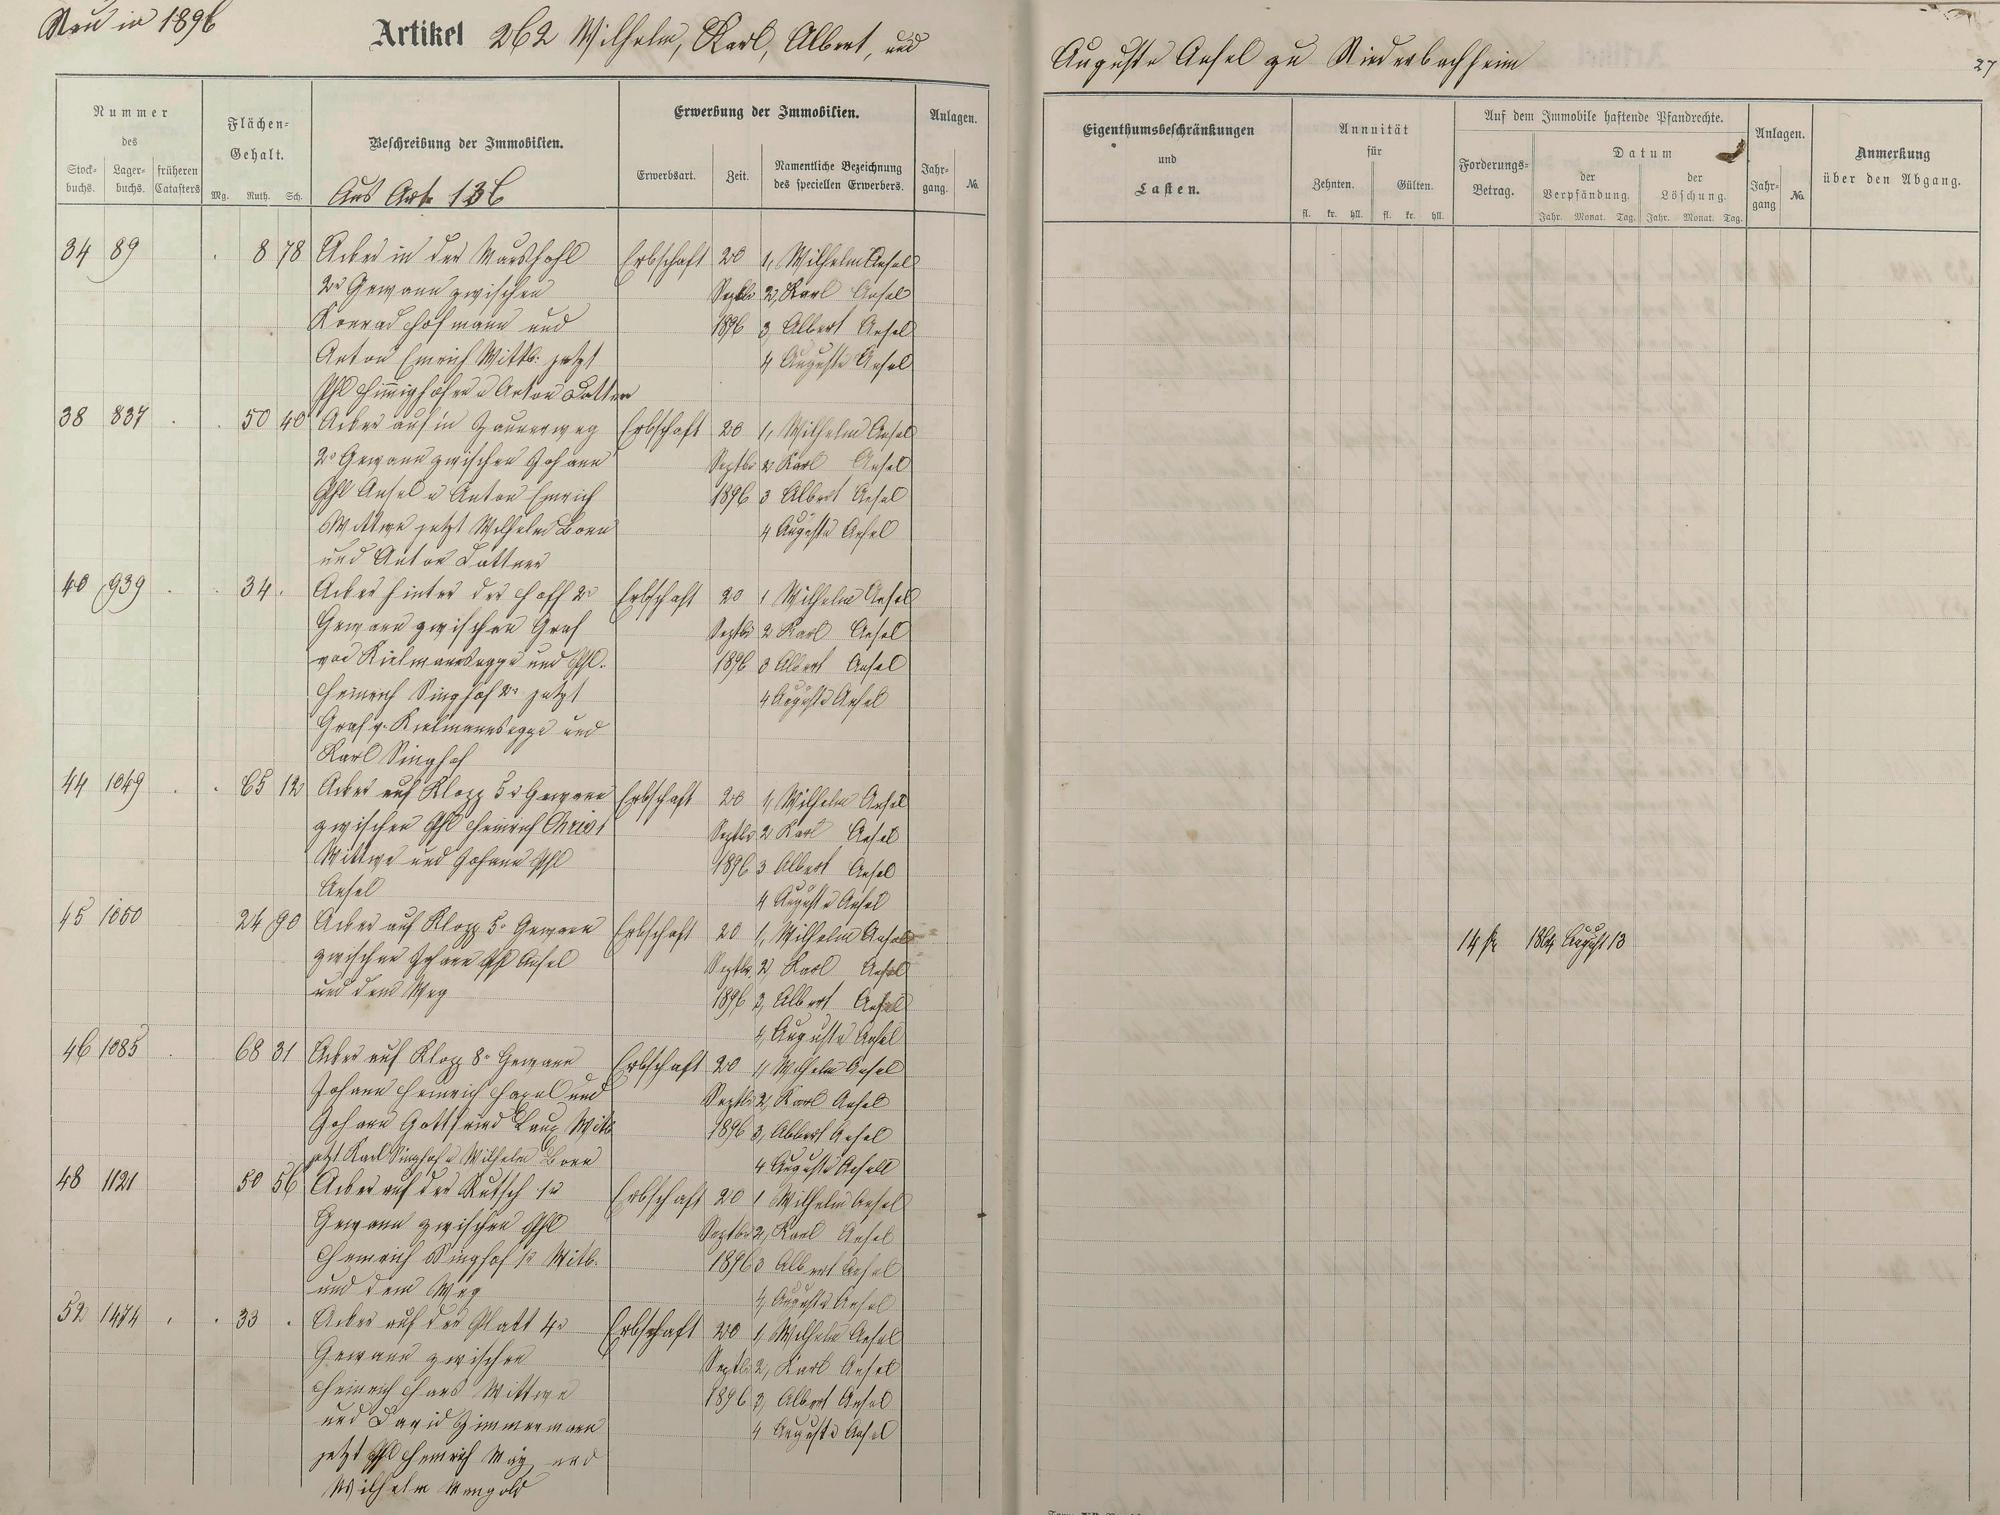 Neu in 1896
Artikel 262 Wilhelm, Karl, Albert, und
Auguste Ansel zu Niederbachheim
27
Nummer
des
Stock-
buchs.
Lager-
buchs.
früheren
Catasters
Flächen-
Gehalt.
Mg. Ruth. Sch.
Beschreibung der Immobilien.
Aus Art. 136
Erwerbung der Immobilien.
Erwerbsart.
Zeit.
Namentliche Bezeichnung
des speciellen Erwerbers.
Anlagen.
Jahr-
gang.
No.
Eigenthumsbeschränkungen
und
Lasten.
Annuität
für
Zehnten. Gülten.
fl. kr. hll. fl. kr. hll.
Auf dem Immobile haftende Pfandrechte.
Forderungs-
Betrag.
Datum
der
Verpfändung.
Jahr. Monat. Tag.
der
Löschung.
Jahr. Monat. Tag.
Anlagen.
Jahr-
gang
No.
Anmerkung
über den Abgang.
34 89 8 78 Acker in der Erbschaft 20 1, Wilhelm Ansel
2r Gewann zwischen Septbr 2, Karl Ansel
Konrad Hofmann und 1896 3 Albert Ansel
Anton Emrich Wittb. jetzt 4 Auguste Ansel
Phl u Anton Lattner
38 837 50 40 Acker auf'm Erbschaft 20 1, Wilhelm Ansel
2r Gewann zwischen Johann Septbr 2 Karl Ansel
Phl Ansel u Anton Emrich 1896 3 Albert Ansel
Wittwe jetzt Wilhelm Born 4 Auguste Ansel
und Anton Lattner
40 939 34 Acker hinter der 2r Erbschaft 20 1 Wilhelm Ansel
Gewann zwischen Graf Septbr 2 Karl Ansel
von Kielmannsegge und Phl. 1896 3 Albert Ansel
Heinrich Singhof 2r jetzt 4 Auguste Ansel
Graf v. Kielmannsegge und
Karl Singhof
44 1049 65 12 Acker auf Klopp 5r Gewann Erbschaft 20 1, Wilhelm Ansel
zwischen Phl Heinrich Christ Septbr 2 Karl Ansel
Wittwe und Johann Phl 1896 3 Albert Ansel
Ansel 4 Auguste Ansel
45 1050 24 90 Acker auf Klopp 5r Gewann Erbschaft 20 1, Wilhelm Ansel August 13
zwischen Johann Phl Ansel Septbr 2 Karl Ansel
und dem Weg 1896 3, Albert Ansel
4, Auguste Ansel
46 1085 68 31 Acker auf Klopp 8r Gewann Erbschaft 20 1, Wilhelm Ansel
Johann Heinrich und Septbr 2, Karl Ansel
Johann Gottfried Witb 1896 3, Albert Ansel
jetzt Karl Singhof u Wilhelm Born 4 Auguste Ansel
48 1121 50 56 Acker auf der Rutsch 1r Erbschaft 20 1 Wilhelm Ansel
Gewann zwischen Phl Septbr 2, Karl Ansel
Heinrich Singhof 1r Witb. 1896 3 Albert Ansel
und dem Weg 4, Auguste Ansel
52 1474 33 Acker auf der Platt 4r Erbschaft 20 1, Wilhelm Ansel
Gewann zwischen Septbr 2, Karl Ansel
Heinrich Wittwe 1896 3, Albert Ansel
und David Zimmermann 4 Auguste Ansel
jetzt Phl Heinrich May und
Wilhelm Mengold